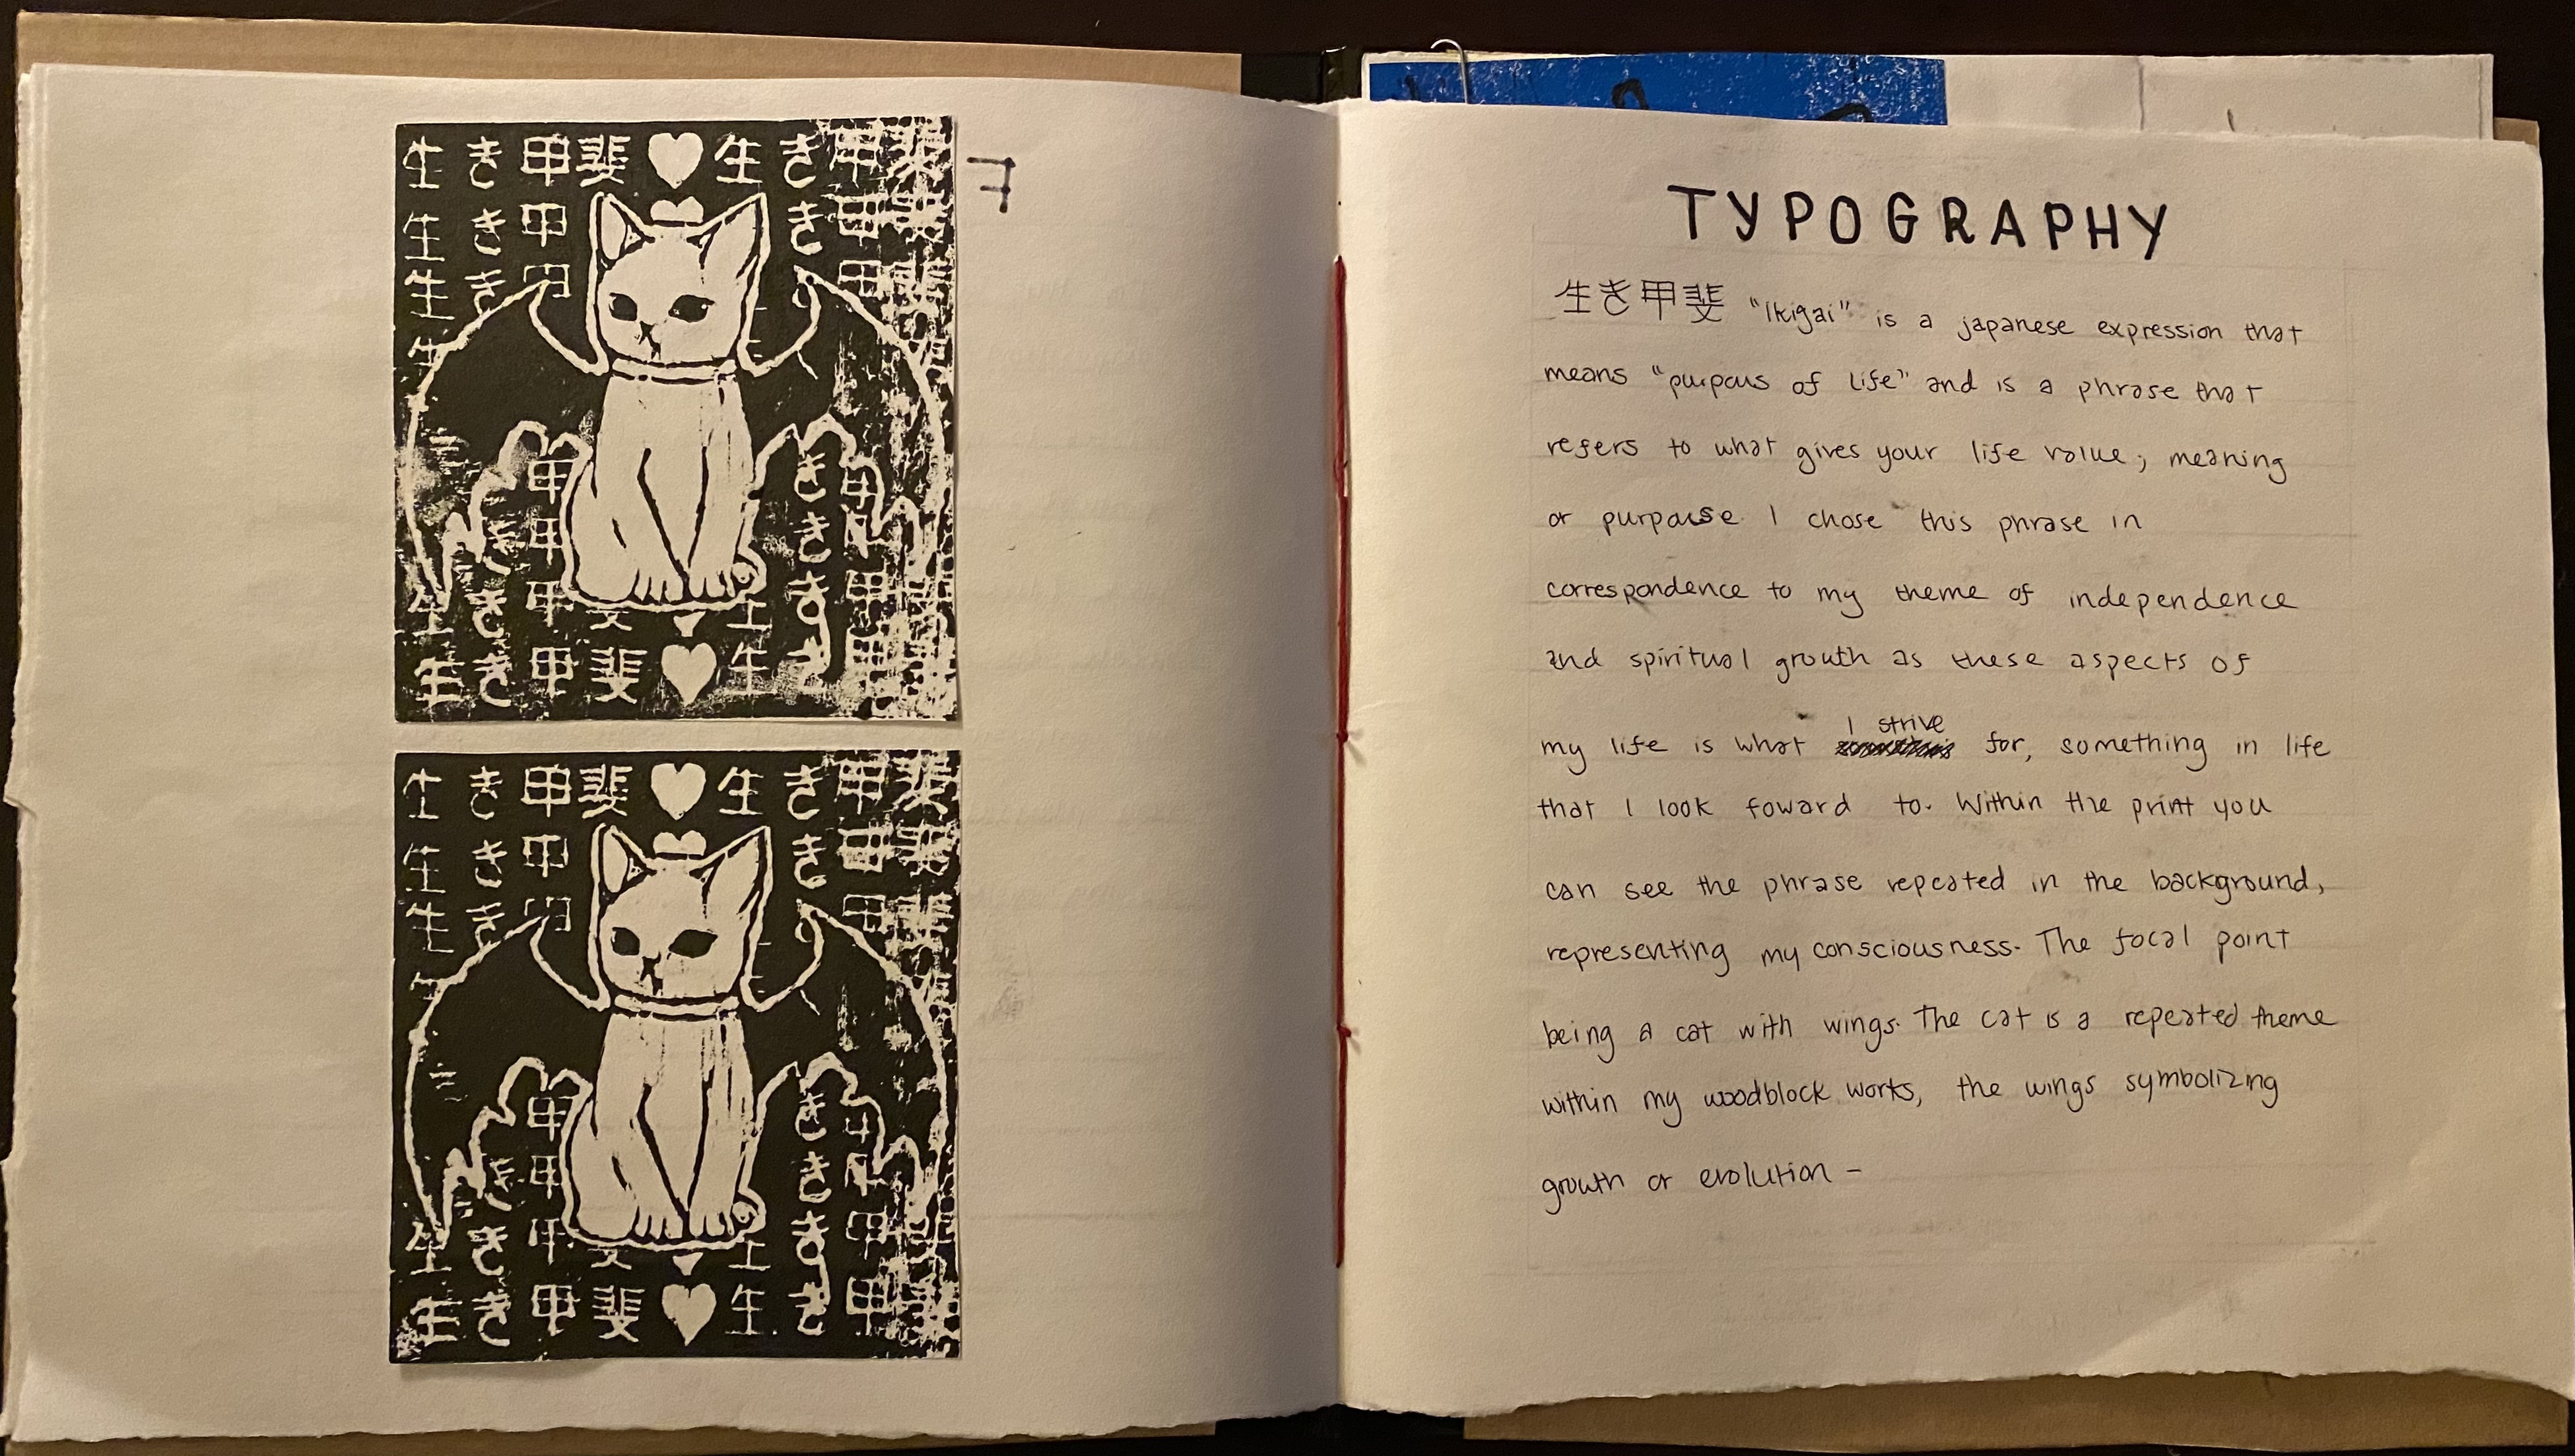 生 き 甲 斐 ♥ 生 き 甲 斐
生 き 甲 き 甲
生 き 甲
き
甲 き 甲
き 甲 き
生 き 甲 き 甲
生 き 甲 斐 ♥ 生 き 甲
生 き 甲 斐 ♥ 生 き 甲 斐
生 き 甲 き 甲 斐
生 き 甲 斐
甲 き 甲
き 甲 き
生 き 甲 き 甲
生 き 甲 斐 ♥ 生 き 甲
TYPOGRAPHY
生き甲斐 "Ikigai" is a japanese expression that
means "purpous of life" and is a phrase that
refers to what gives your life value; meaning
or purpouse. I chose this phrase in
correspondence to my theme of independence
and spiritual growth as these aspects of
my life is what I strive for, something in life
that I look foward to. Within the print you
can see the phrase repeated in the background,
representing my consciousness. The focal point
being a cat with wings. The cat is a repeated theme
within my woodblock works, the wings symbolizing
growth or evolution -